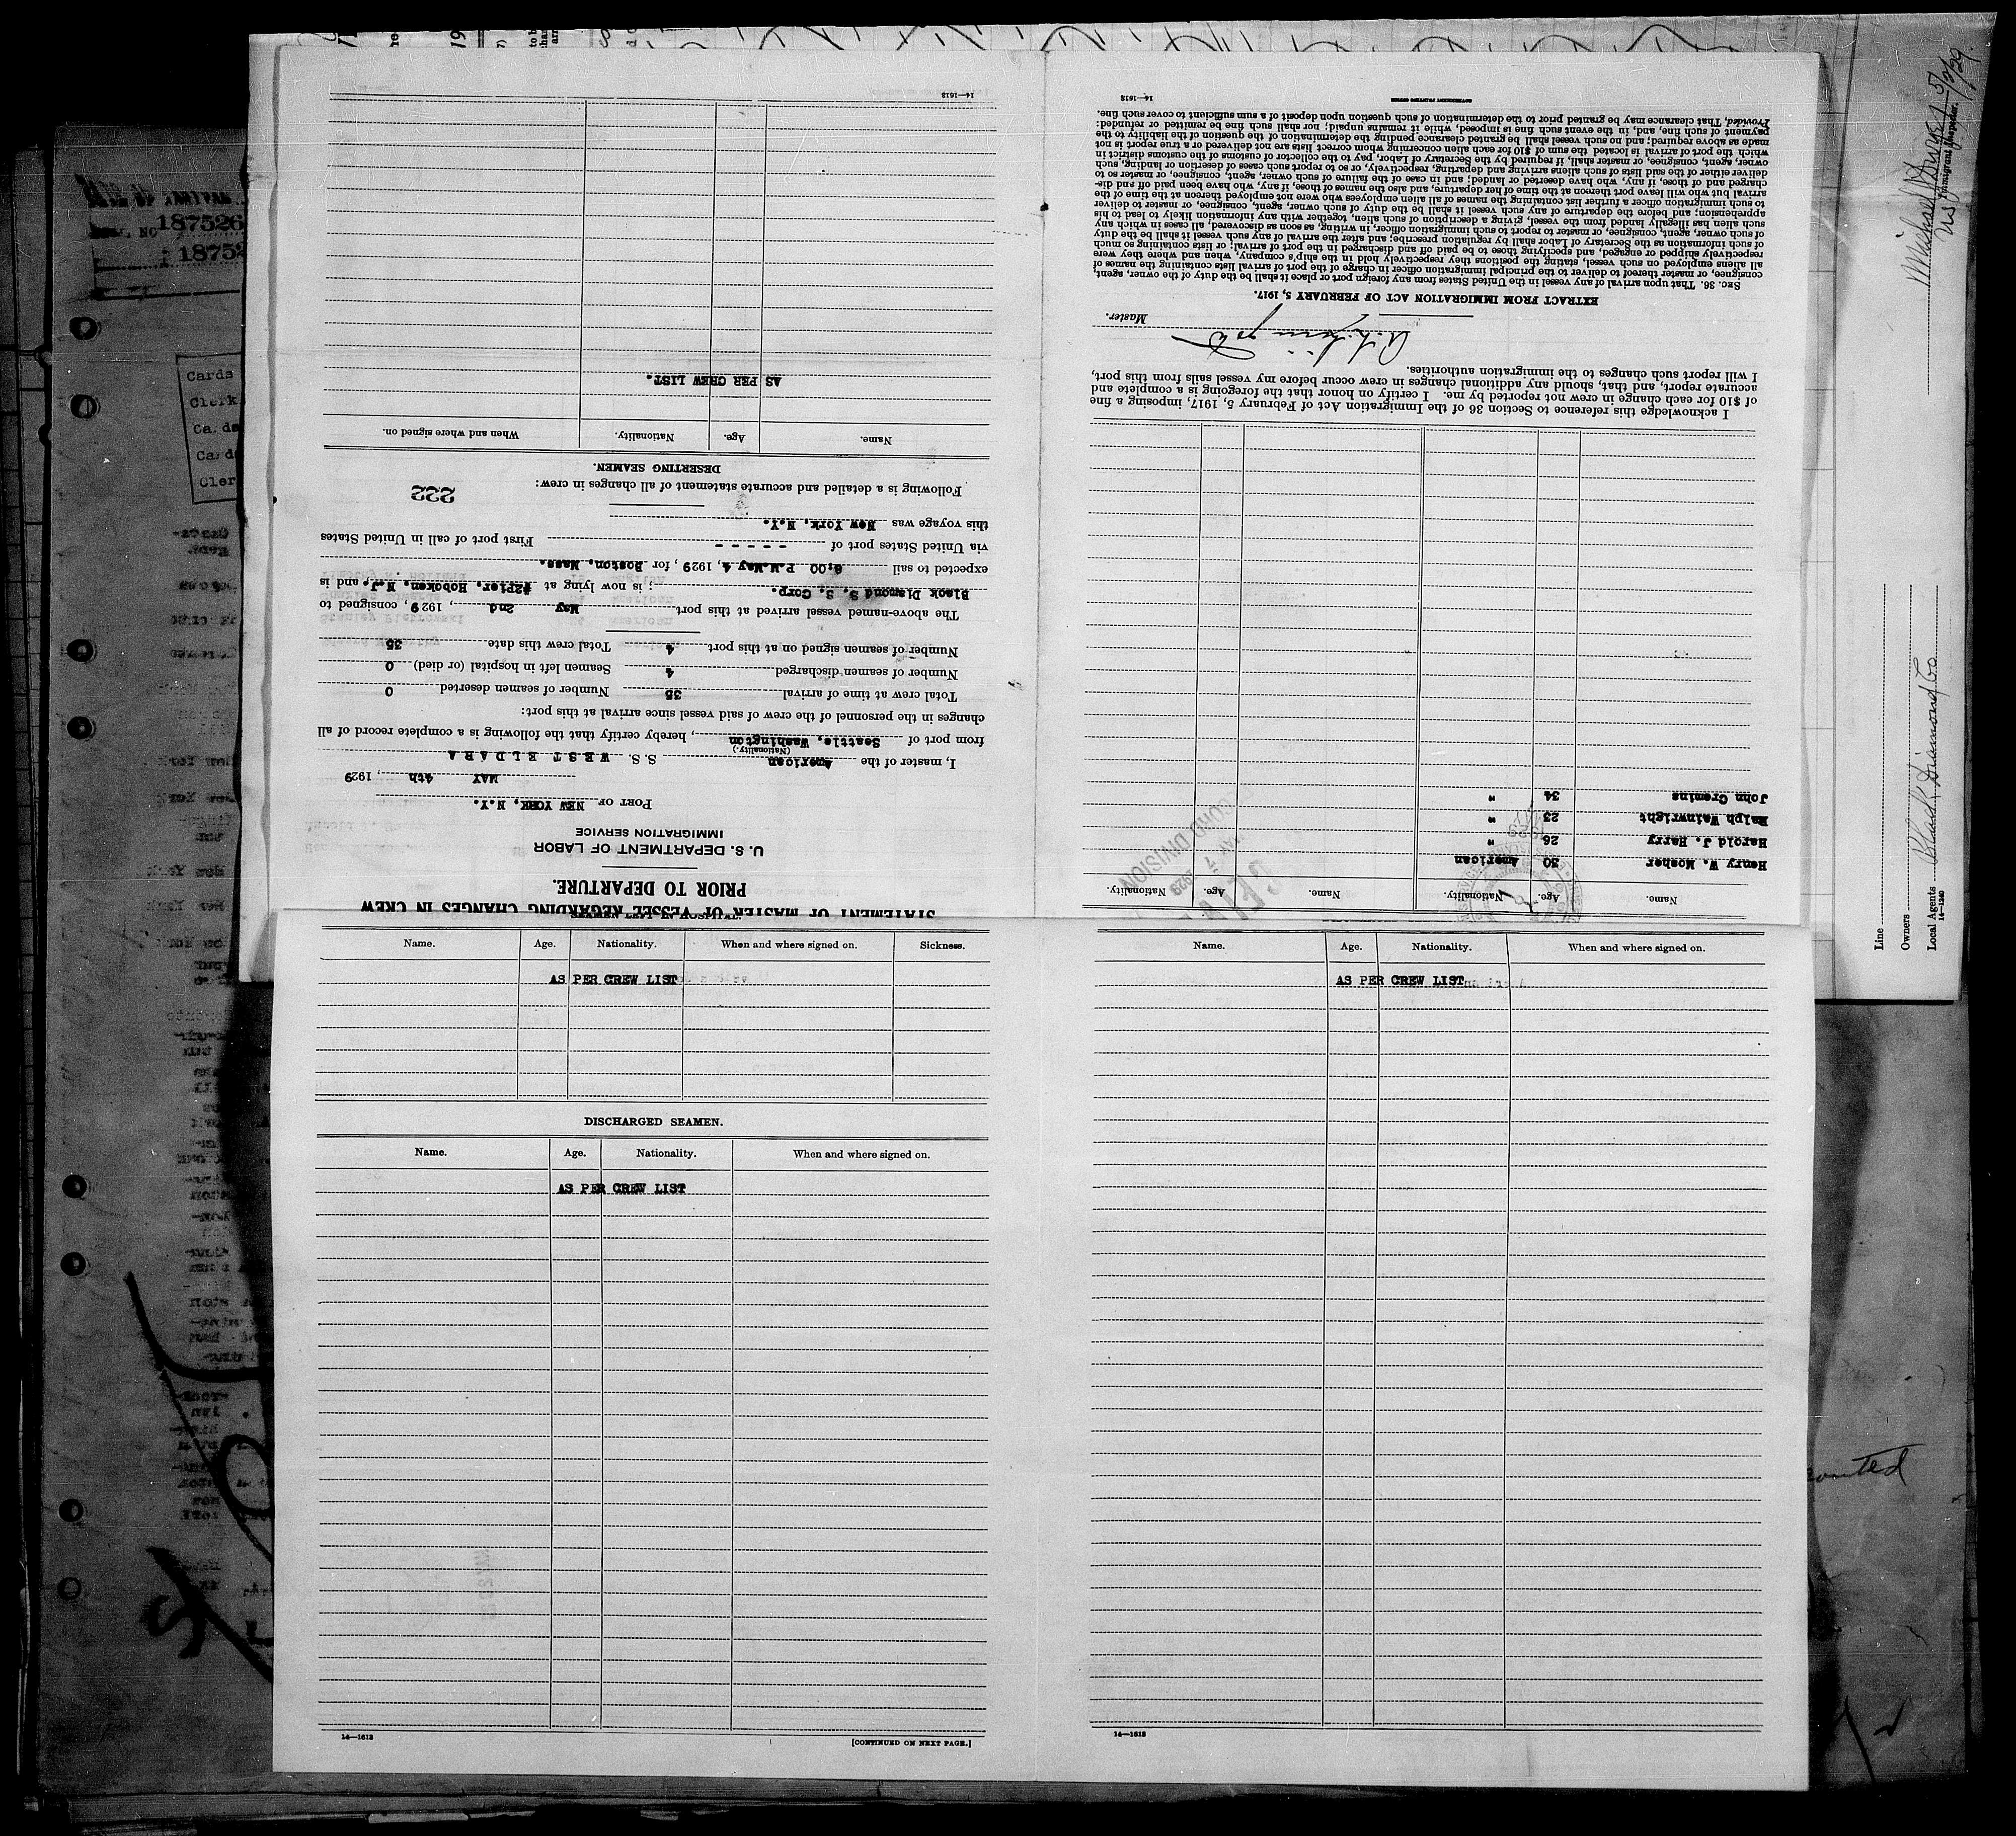 STATEMENT OF MASTER OF VESSEL REGARDING CHANGES IN CREW
PRIOR TO DEPARTURE.
U. S. DEPARTMENT OF LABOR
IMMIGRATION SERVICE
PORT OF NEW YORK, N.Y.
MAY 4th, 1929
I, master of the American S. S. WEST ELDARA
(Nationality.)
from port of Seattle, Washington, hereby certify that the following is a complete record of all
changes in the personnel of the crew of said vessel since arrival at this port:
Total crew at time of arrival 35 Number of seamen deserted 0
Number of seamen discharged 4 Seamen left in hospital (or died) 0
Number of seamen signed on at this port 4 Total crew this date 35
The above-named vessel arrived at this port May 2nd, 1929, consigned to
Black Diamond S. S. Corp.; is now lying at #2Pier, Hoboken, N.J., and is
expected to sail 6;00 P.M. May 4, 1929, for Boston, Mass.
via United States port of - - - - - First port of call in United States
this voyage was New York, N.Y.
Following is a detailed and accurate statement of all changes in crew:
222
DESERTING SEAMEN.
Name. Age. Nationality. When and where signed on.
AS PER CREW LIST.
14—1613
Name. Age. Nationality. Name. Age. Nationality.
Henry W. Mosher 30 American
Harold J. Harry 26 "
Ralph Wainwright 23 "
John Cremins 34 "
RECORD DIVISION
MAY 7 1929
I acknowledge this reference to Section 36 of the Immigration Act of February 5, 1917, imposing a fine
of $10 for each change in crew not reported by me. I certify on honor that the foregoing is a complete and
accurate report, and that, should any additional changes in crew occur before my vessel sails from this port,
I will report such changes to the immigration authorities.
Master.
EXTRACT FROM IMMIGRATION ACT OF FEBRUARY 5, 1917.
SEC. 36. That upon arrival of any vessel in the United States from any foreign port or place it shall be the duty of the owner, agent,
consignee, or master thereof to deliver to the principal immigration officer in charge of the port of arrival lists containing the names of
all aliens employed on such vessel, stating the positions they respectively hold in the ship's company, when and where they were
respectively shipped or engaged, and specifying those to be paid off and discharged in the port of arrival; or lists containing so much
of such information as the Secretary of Labor shall by regulation prescribe; and after the arrival of any such vessel it shall be the duty
of such owner, agent, consignee, or master to report to such immigration officer, in writing, as soon as discovered, all cases in which any
such alien has illegally landed from the vessel, giving a description of such alien, together with any information likely to lead to his
apprehension; and before the departure of any such vessel it shall be the duty of such owner, agent, consignee, or master to deliver
to such immigration officer a further list containing the names of all alien employees who were not employed thereon at the time of the
arrival but who will leave port thereon at the time of her departure, and also the names of those, if any, who have been paid off and dis-
charged and of those, if any, who have deserted or landed; and in case of the failure of such owner, agent, consignee, or master so to
deliver either of the said lists of such aliens arriving and departing, respectively, or so to report such cases of desertion or landing, such
owner, agent, consignee, or master shall, if required by the Secretary of Labor, pay to the collector of customs of the customs district in
which the port of arrival is located the sum of $10 for each alien concerning whom correct lists are not delivered or a true report is not
made as above required; and no such vessel shall be granted clearance pending the determination of the question of the liability to the
payment of such fine, and, in the event such fine is imposed, while it remains unpaid; nor shall such fine be remitted or refunded:
Provided, That clearance may be granted prior to the determination of such question upon deposit of a sum sufficient to cover such fine.
14—1613
GOVERNMENT PRINTING OFFICE
SEAMEN LEFT IN HOSPITAL.
Name. Age. Nationality. When and where signed on. Sickness.
AS PER CREW LIST
DISCHARGED SEAMEN.
Name. Age. Nationality. When and where signed on.
AS PER CREW LIST
14—1613
[CONTINUED ON NEXT PAGE.]
Name. Age. Nationality. When and where signed on.
AS PER CREW LIST
14—1613
187526
Cards
Clerk
Immigrant Inspector.
Line
Owners
Local Agents Black Diamond Co
14—1240